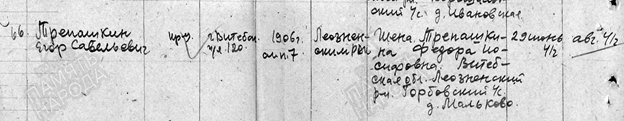 ский с/с. д. Ивановская.
66. Трепашкин Егор Савельевич
г. Витебск п/я 120.
1906г.
Лиозненским РВК
Жена Трепашкина Федора Иосифовна. Витебская обл. Лиозненский р-н. Горбовский с/с д. Мальково.
29 июнь 41г
авг. 41г
ПАМЯТЬ НАРОДА